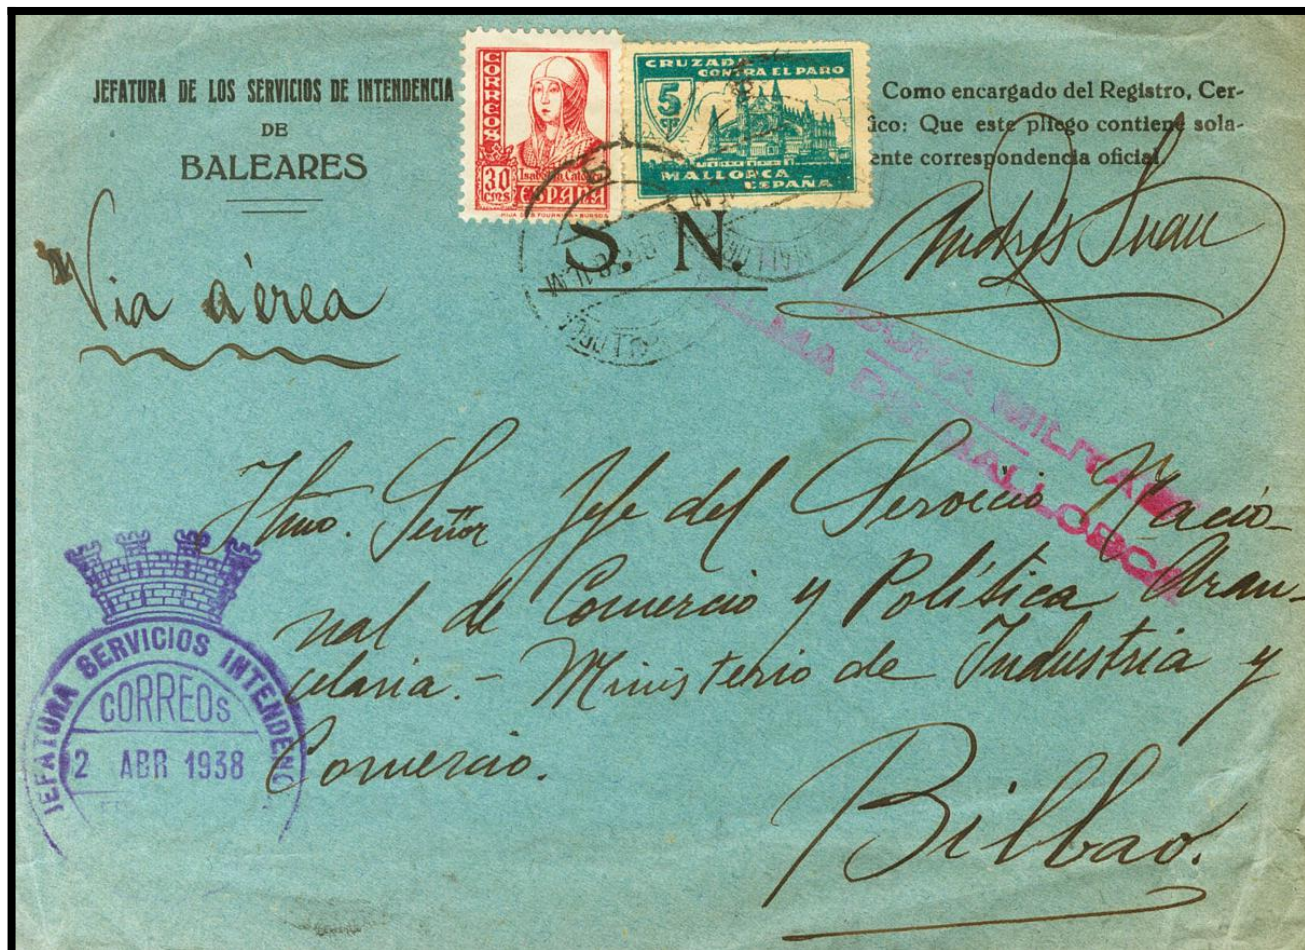 JEFATURA DE LOS SERVICIOS DE INTENDENCIA
DE
BALEARES
CORREOS
30
CMS
Isabel la Católica
ESPAÑA
HIJA DE B. FOURNIER - BURGOS
CRUZADA
CONTRA EL PARO
5
cts
MALLORCA
ESPAÑA
Como encargado del Registro, Cer-
fico: Que este pliego contiene sola-
ente correspondencia oficial.
S. N.
Via aérea
MILITAR
DE MALLORCA
Iltmo. Señor Jefe del Servicio Nacio-
nal de Comercio y Política Aran-
celaria.- Ministerio de Industria y
Comercio.
Bilbao.
JEFATURA SERVICIOS INTENDENC
CORREOS
2 ABR 1938